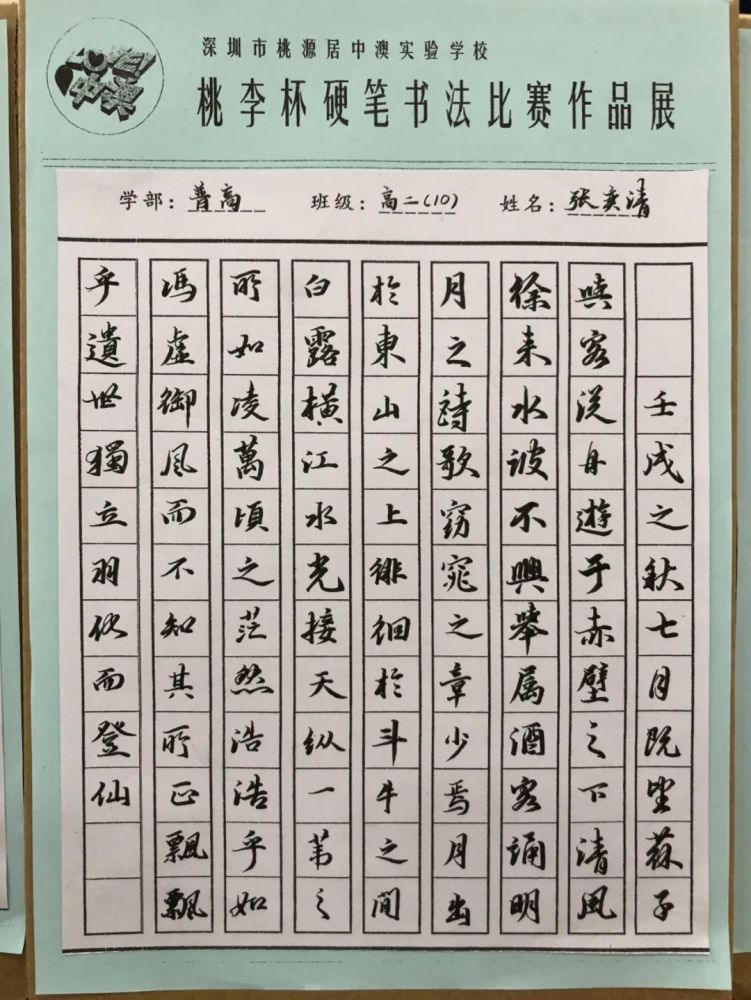 中澳
深圳市桃源居中澳实验学校
桃李杯硬笔书法比赛作品展
学部：普高 班级：高二(10) 姓名：张奕清
壬戌之秋七月既望蘇子
與客泛舟遊于赤壁之下清風
徐来水波不興舉属酒客誦明
月之詩歌窈窕之章少焉月出
於東山之上徘徊於斗牛之間
白露横江水光接天纵一苇之
所如凌萬頃之茫然浩浩乎如
馮虚御风而不知其所止飄飄
乎遺世獨立羽化而登仙